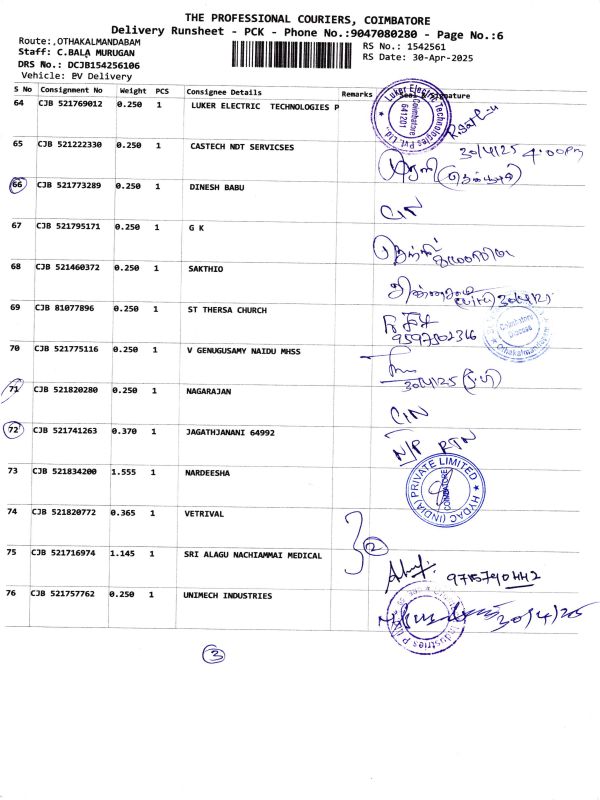 THE PROFESSIONAL COURIERS, COIMBATORE
Delivery Runsheet - PCK - Phone No.:9047080280 - Page No.:6
Route:,OTHAKALMANDABAM
Staff: C.BALA MURUGAN
DRS No.: DCJB154256106
Vehicle: PV Delivery
RS No.: 1542561
RS Date: 30-Apr-2025
S No Consignment No Weight PCS Consignee Details Remarks Seal & Signature
64 CJB 521769012 0.250 1 LUKER ELECTRIC TECHNOLOGIES P
Luker Electric Technologies Pvt. Ltd. Coimbatore 641201
30/4/25 4:00pm
65 CJB 521222330 0.250 1 CASTECH NDT SERVICSES
66 CJB 521773289 0.250 1 DINESH BABU
C/N
67 CJB 521795171 0.250 1 G K
68 CJB 521460372 0.250 1 SAKTHIO
30/4/25
69 CJB 81077896 0.250 1 ST THERSA CHURCH
9597502316
Coimbatore Diocese Othakalmandapam
70 CJB 521775116 0.250 1 V GENUGUSAMY NAIDU MHSS
30/4/25
71 CJB 521820280 0.250 1 NAGARAJAN
C/N
72 CJB 521741263 0.370 1 JAGATHJANANI 64992
N/P RTN
73 CJB 521834200 1.555 1 NARDEESHA
HYDAC (INDIA) PRIVATE LIMITED COIMBATORE
74 CJB 521820772 0.365 1 VETRIVAL
2
75 CJB 521716974 1.145 1 SRI ALAGU NACHIAMMAI MEDICAL
9715790442
76 CJB 521757762 0.250 1 UNIMECH INDUSTRIES
Industries P
30/4/25
3